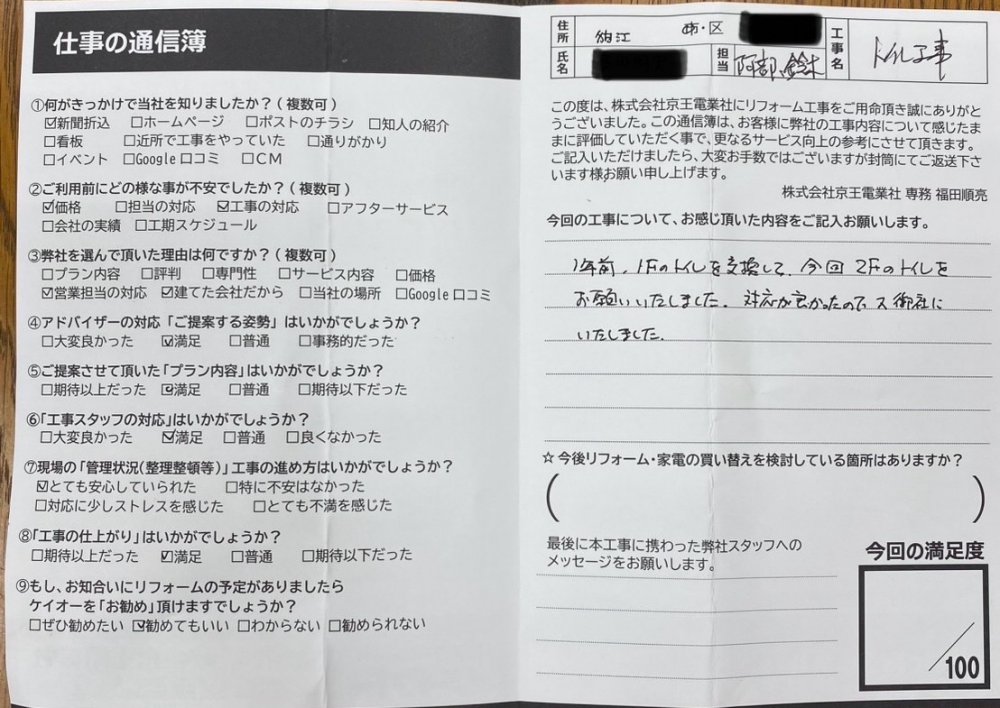 仕事の通信簿
①何がきっかけで当社を知りましたか?(複数可)
☑新聞折込 □ホームページ □ポストのチラシ □知人の紹介
□看板 □近所で工事をやっていた □通りがかり
□イベント □Google口コミ □CM
②ご利用前にどの様な事が不安でしたか?(複数可)
☑価格 □担当の対応 ☑工事の対応 □アフターサービス
□会社の実績 □工期スケジュール
③弊社を選んで頂いた理由は何ですか?(複数可)
□プラン内容 □評判 □専門性 □サービス内容 □価格
☑営業担当の対応 ☑建てた会社だから □当社の場所 □Google口コミ
④アドバイザーの対応「ご提案する姿勢」はいかがでしょうか?
□大変良かった ☑満足 □普通 □事務的だった
⑤ご提案させて頂いた「プラン内容」はいかがでしょうか?
□期待以上だった ☑満足 □普通 □期待以下だった
⑥「工事スタッフの対応」はいかがでしょうか?
□大変良かった ☑満足 □普通 □良くなかった
⑦現場の「管理状況(整理整頓等)」工事の進め方はいかがでしょうか?
☑とても安心していられた □特に不安はなかった
□対応に少しストレスを感じた □とても不満を感じた
⑧「工事の仕上がり」はいかがでしょうか?
□期待以上だった ☑満足 □普通 □期待以下だった
⑨もし、お知合いにリフォームの予定がありましたら
ケイオーを「お勧め」頂けますでしょうか?
□ぜひ勧めたい ☑勧めてもいい □わからない □勧められない
住所 狛江 市・区
氏名 担当 阿部、鈴木
工事名 トイレ工事
この度は、株式会社京王電業社にリフォーム工事をご用命頂き誠にありがと
うございました。この通信簿は、お客様に弊社の工事内容について感じたま
まに評価していただく事で、更なるサービス向上の参考にさせて頂きます。
ご記入いただけましたら、大変お手数ではございますが封筒にてご返送下さ
います様お願い申し上げます。
株式会社京王電業社 専務 福田順亮
今回の工事について、お感じ頂いた内容をご記入お願いします。
1年前、1Fのトイレを交換して、今回2Fのトイレを
お願いいたしました。対応が良かったので、又御社に
いたしました。
☆今後リフォーム・家電の買い替えを検討している箇所はありますか?
( )
最後に本工事に携わった弊社スタッフへの
メッセージをお願いします。
今回の満足度
/100